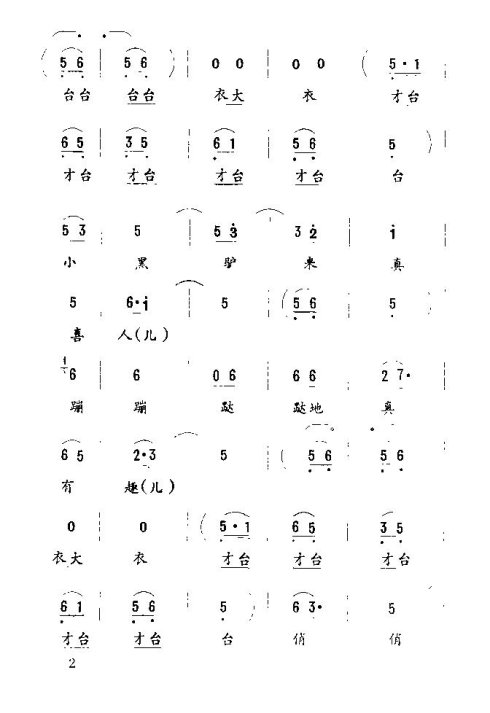 ( 5 6 5 6 ) 0 0 0 0 ( 5 · 1
台台 台台 衣大 衣 才台
6 5 3 5 6 1 5 6 5 )
才台 才台 才台 才台 台
5 3 5 5 3 3 2 i
小 黑 驴 来 真
5 6 · i 5 ( 5 6 5 )
喜 人(儿)
6 6 0 6 6 6 2 7 ·
蹦 蹦 跶 跶地 真
6 5 2 · 3 5 ( 5 6 5 6 )
有 趣(儿)
0 0 0 ( 5 · 1 6 5 3 5
衣大 衣 才台 才台 才台
6 1 5 6 5 ) 6 3 · 5
才台 才台 台 俏 俏
2